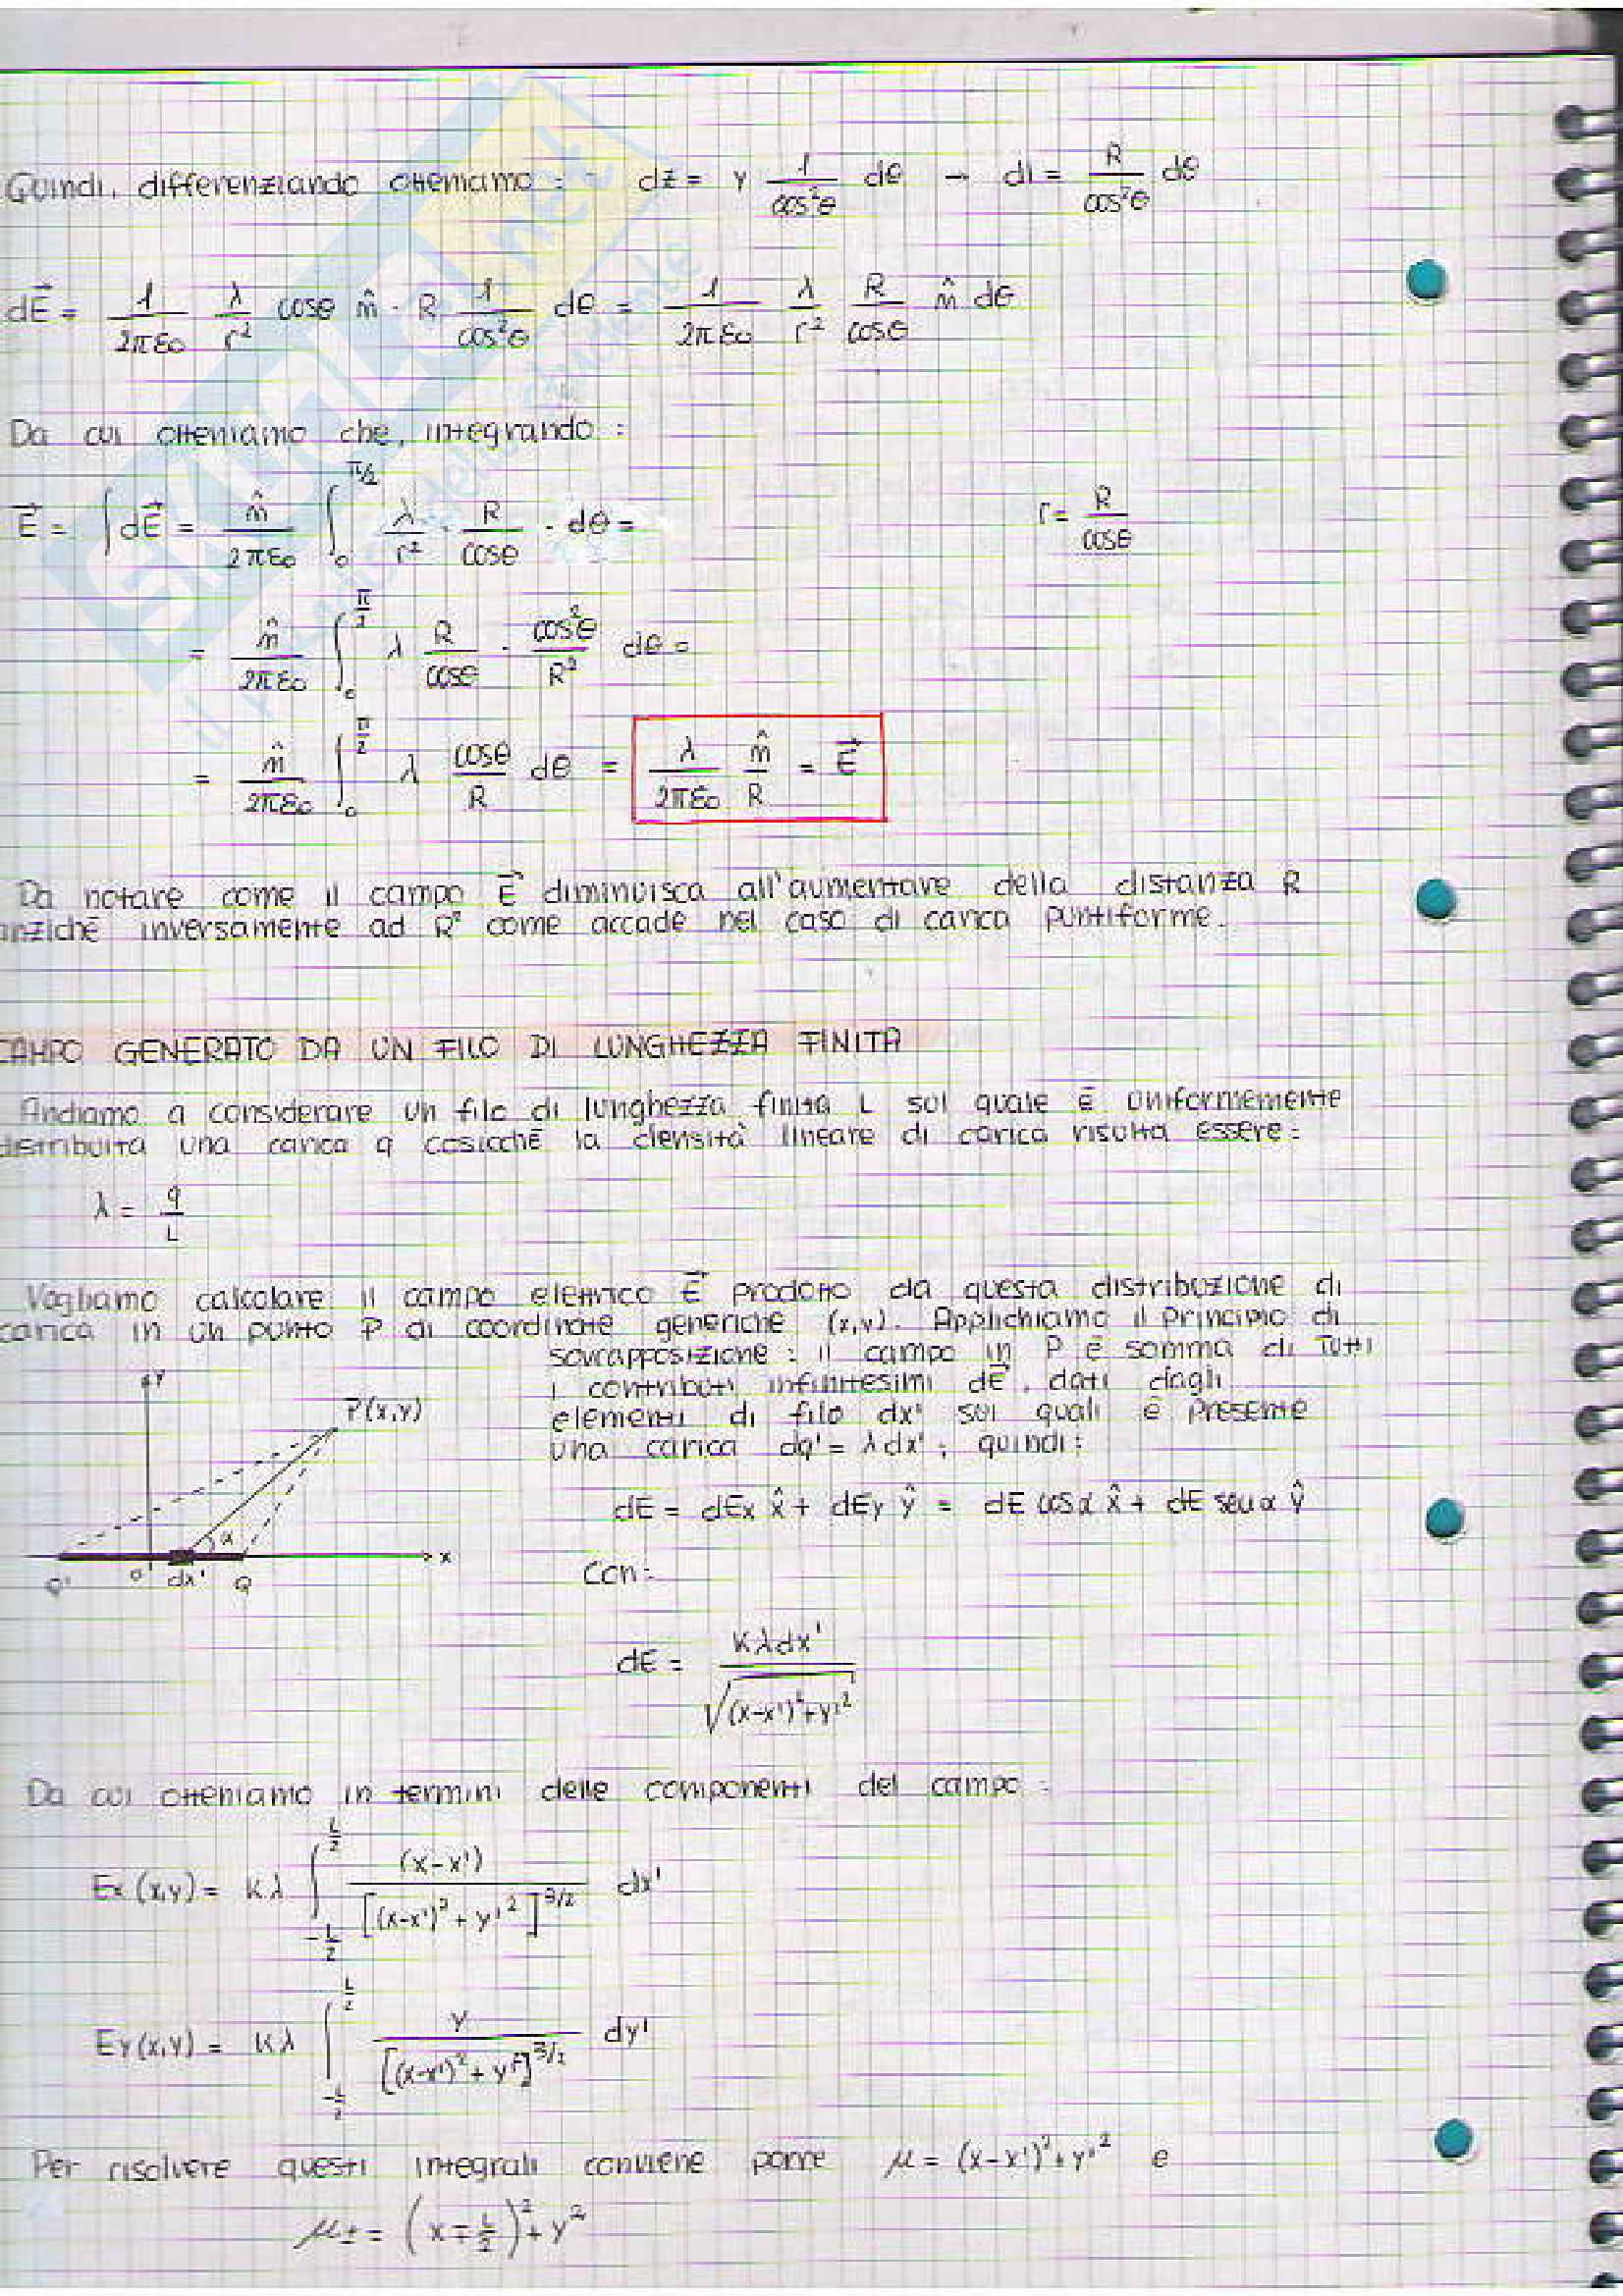 Quindi, differenziando otteniamo : dz = y 1/cos²θ dθ → dl = R/cos²θ dθ
dE⃗ = 1/2πε₀ λ/r² cosθ m̂ · R 1/cos²θ dθ = 1/2πε₀ λ/r² R/cosθ m̂ dθ
Da cui otteniamo che, integrando :
E⃗ = ∫dE⃗ = m̂/2πε₀ ∫₀^π/2 λ/r² · R/cosθ · dθ = r = R/cosθ
= m̂/2πε₀ ∫₀^π/2 λ R/cosθ · cos²θ/R² dθ =
= m̂/2πε₀ ∫₀^π/2 λ cosθ/R dθ = λ/2πε₀ m̂/R = E⃗
Da notare come il campo E⃗ diminuisca all'aumentare della distanza R
anziché inversamente ad R² come accade nel caso di carica puntiforme.
CAMPO GENERATO DA UN FILO DI LUNGHEZZA FINITA
Andiamo a considerare un filo di lunghezza finita L sul quale è uniformemente
distribuita una carica q cosicché la densità lineare di carica risulta essere :
λ = q/L
Vogliamo calcolare il campo elettrico E⃗ prodotto da questa distribuzione di
carica in un punto P di coordinate generiche (x,y). Applichiamo il principio di
sovrapposizione : il campo in P è somma di tutti
i contributi infinitesimi dE⃗, dati dagli
elementi di filo dx' sui quali è presente
una carica dq' = λdx' ; quindi :
y
P(x,y)
α
x
O' dx' Q
dE = dEx x̂ + dEy ŷ = dE cosα x̂ + dE senα ŷ
Con :
dE = Kλdx'/√(x-x')²+y'²
Da cui otteniamo in termini delle componenti del campo :
Ex(x,y) = Kλ ∫_-L/2^L/2 (x-x')/[(x-x')²+y'²]^3/2 dx'
Ey(x,y) = Kλ ∫_-L/2^L/2 y/[(x-x')²+y²]^3/2 dy'
Per risolvere questi integrali conviene porre μ = (x-x')²+y'² e
μ± = (x∓L/2)²+y²